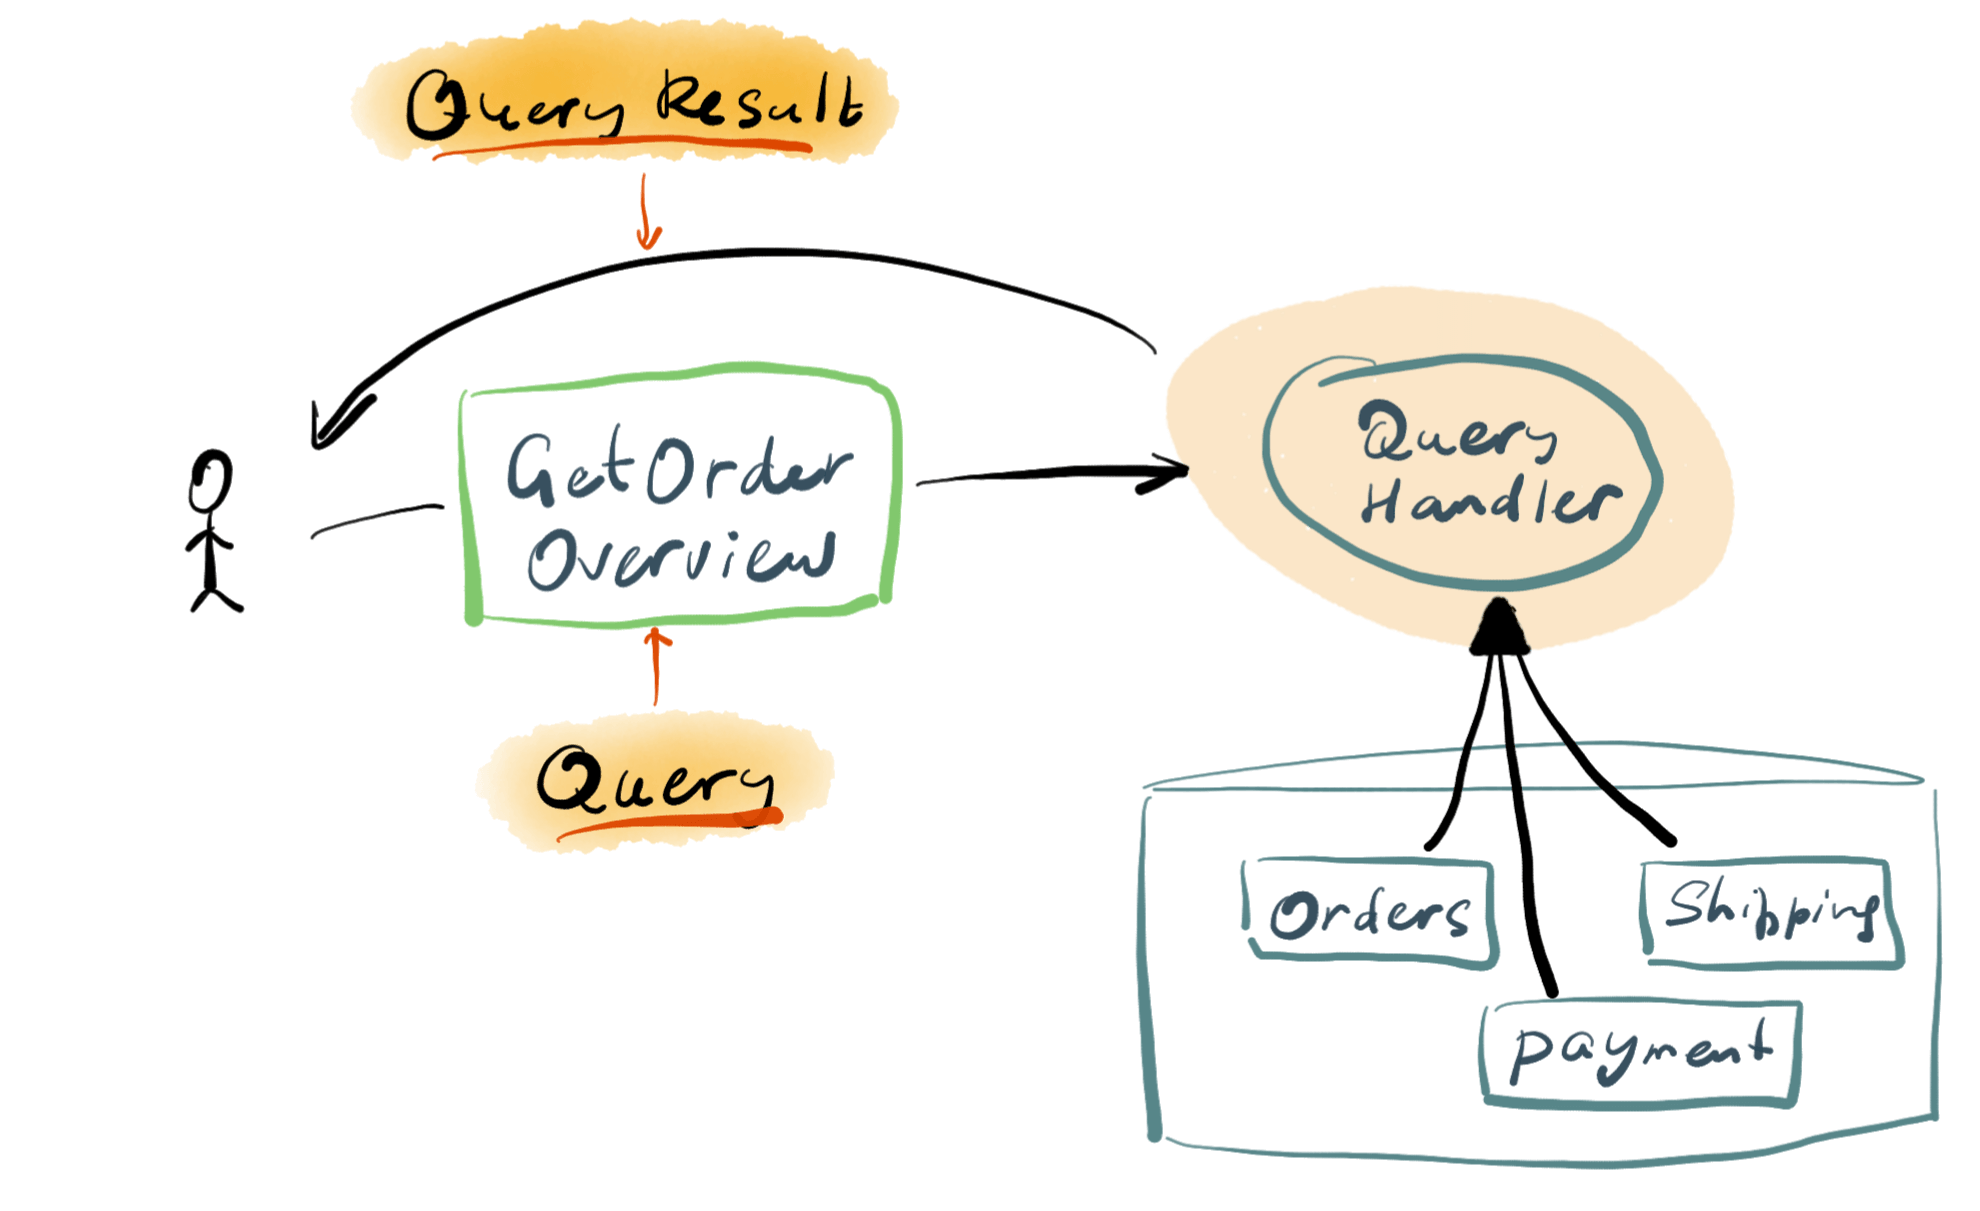 Query Result
GetOrder
Overview
Query
Handler
Query
Orders
Shipping
payment